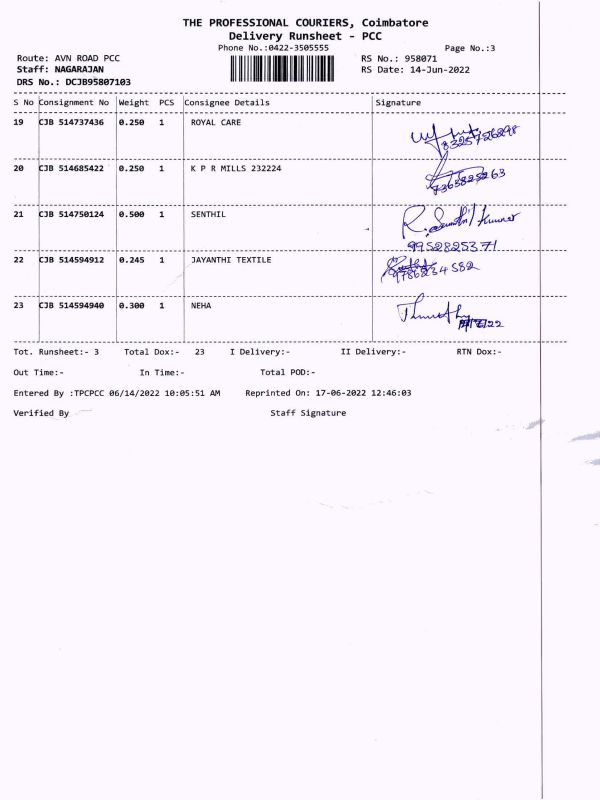 THE PROFESSIONAL COURIERS, Coimbatore
Delivery Runsheet - PCC
Phone No.:0422-3505555 Page No.:3
Route: AVN ROAD PCC RS No.: 958071
Staff: NAGARAJAN RS Date: 14-Jun-2022
DRS No.: DCJB95807103
S No Consignment No Weight PCS Consignee Details Signature
19 CJB 514737436 0.250 1 ROYAL CARE
8325726298
20 CJB 514685422 0.250 1 K P R MILLS 232224
7365825263
21 CJB 514750124 0.500 1 SENTHIL R. Senthil Kumar
9952825371
22 CJB 514594912 0.245 1 JAYANTHI TEXTILE
23 CJB 514594940 0.300 1 NEHA
Tot. Runsheet:- 3 Total Dox:- 23 I Delivery:- II Delivery:- RTN Dox:-
Out Time:- In Time:- Total POD:-
Entered By :TPCPCC 06/14/2022 10:05:51 AM Reprinted On: 17-06-2022 12:46:03
Verified By Staff Signature